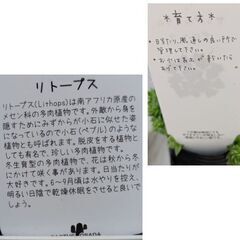 リトープス
リトープス(Lithops)は南アフリカ原産の
メセン科の多肉植物です。外敵から身を
隠すためにみずからが小石に似せた姿
になっているので小石(ペブル)のような
植物とも呼ばれます。脱皮をする植物と
しても有名で、珍しい多肉植物です。
冬生育型の多肉植物で、花は秋から冬
にかけて咲く事があります。日当たりが
大好きです。6〜9月頃は水やりを控え、
明るい日陰で乾燥休眠をさせると良いで
しょう。
*育て方*
・日当たり、風通しの良い所で
管理して下さい。
・お水は表土が乾いたら
あげて下さい。